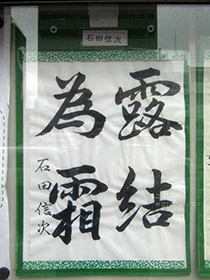 石田信次
露結
為霜
石田信次